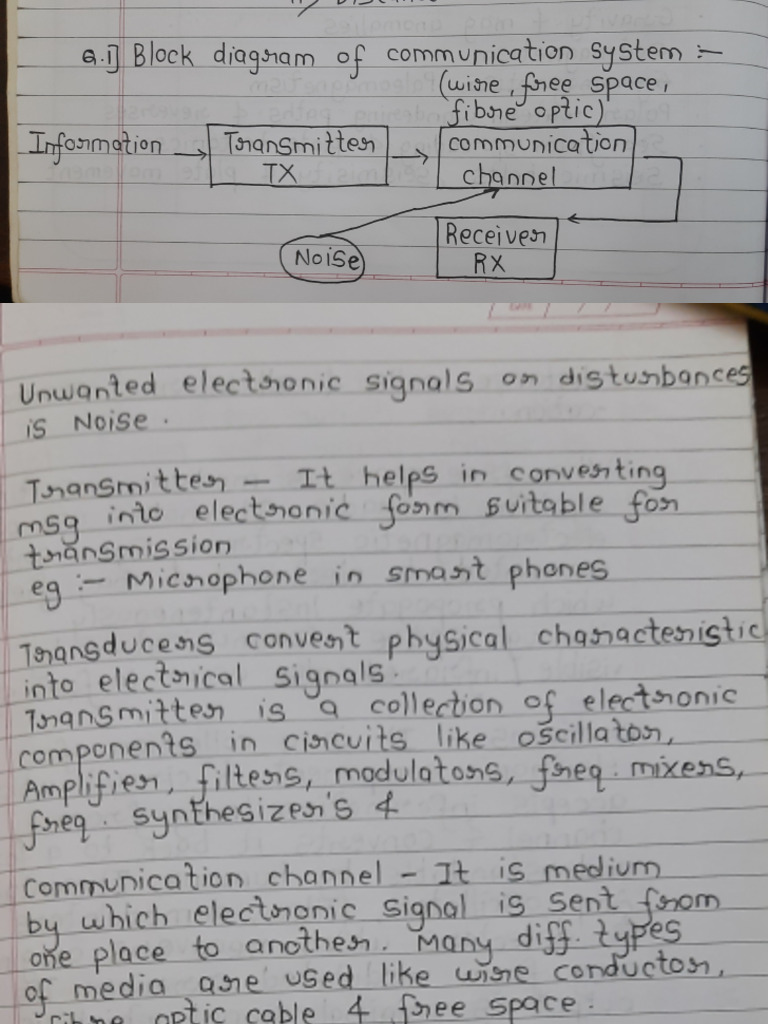 Q.1] Block diagram of communication system :-
(wire, free space,
fibre optic)
Information → Transmitter TX → communication channel
Noise
Receiver
RX
Unwanted electronic signals or disturbances
is Noise.
Transmitter - It helps in converting
msg into electronic form suitable for
transmission
eg :- Microphone in smart phones
Transducers convert physical characteristic
into electrical signals.
Transmitter is a collection of electronic
components in circuits like oscillator,
Amplifier, filters, modulators, freq. mixers,
freq. synthesizer's &
communication channel - It is medium
by which electronic signal is sent from
one place to another. Many diff. types
of media are used like wire conductor,
fibre optic cable & free space.